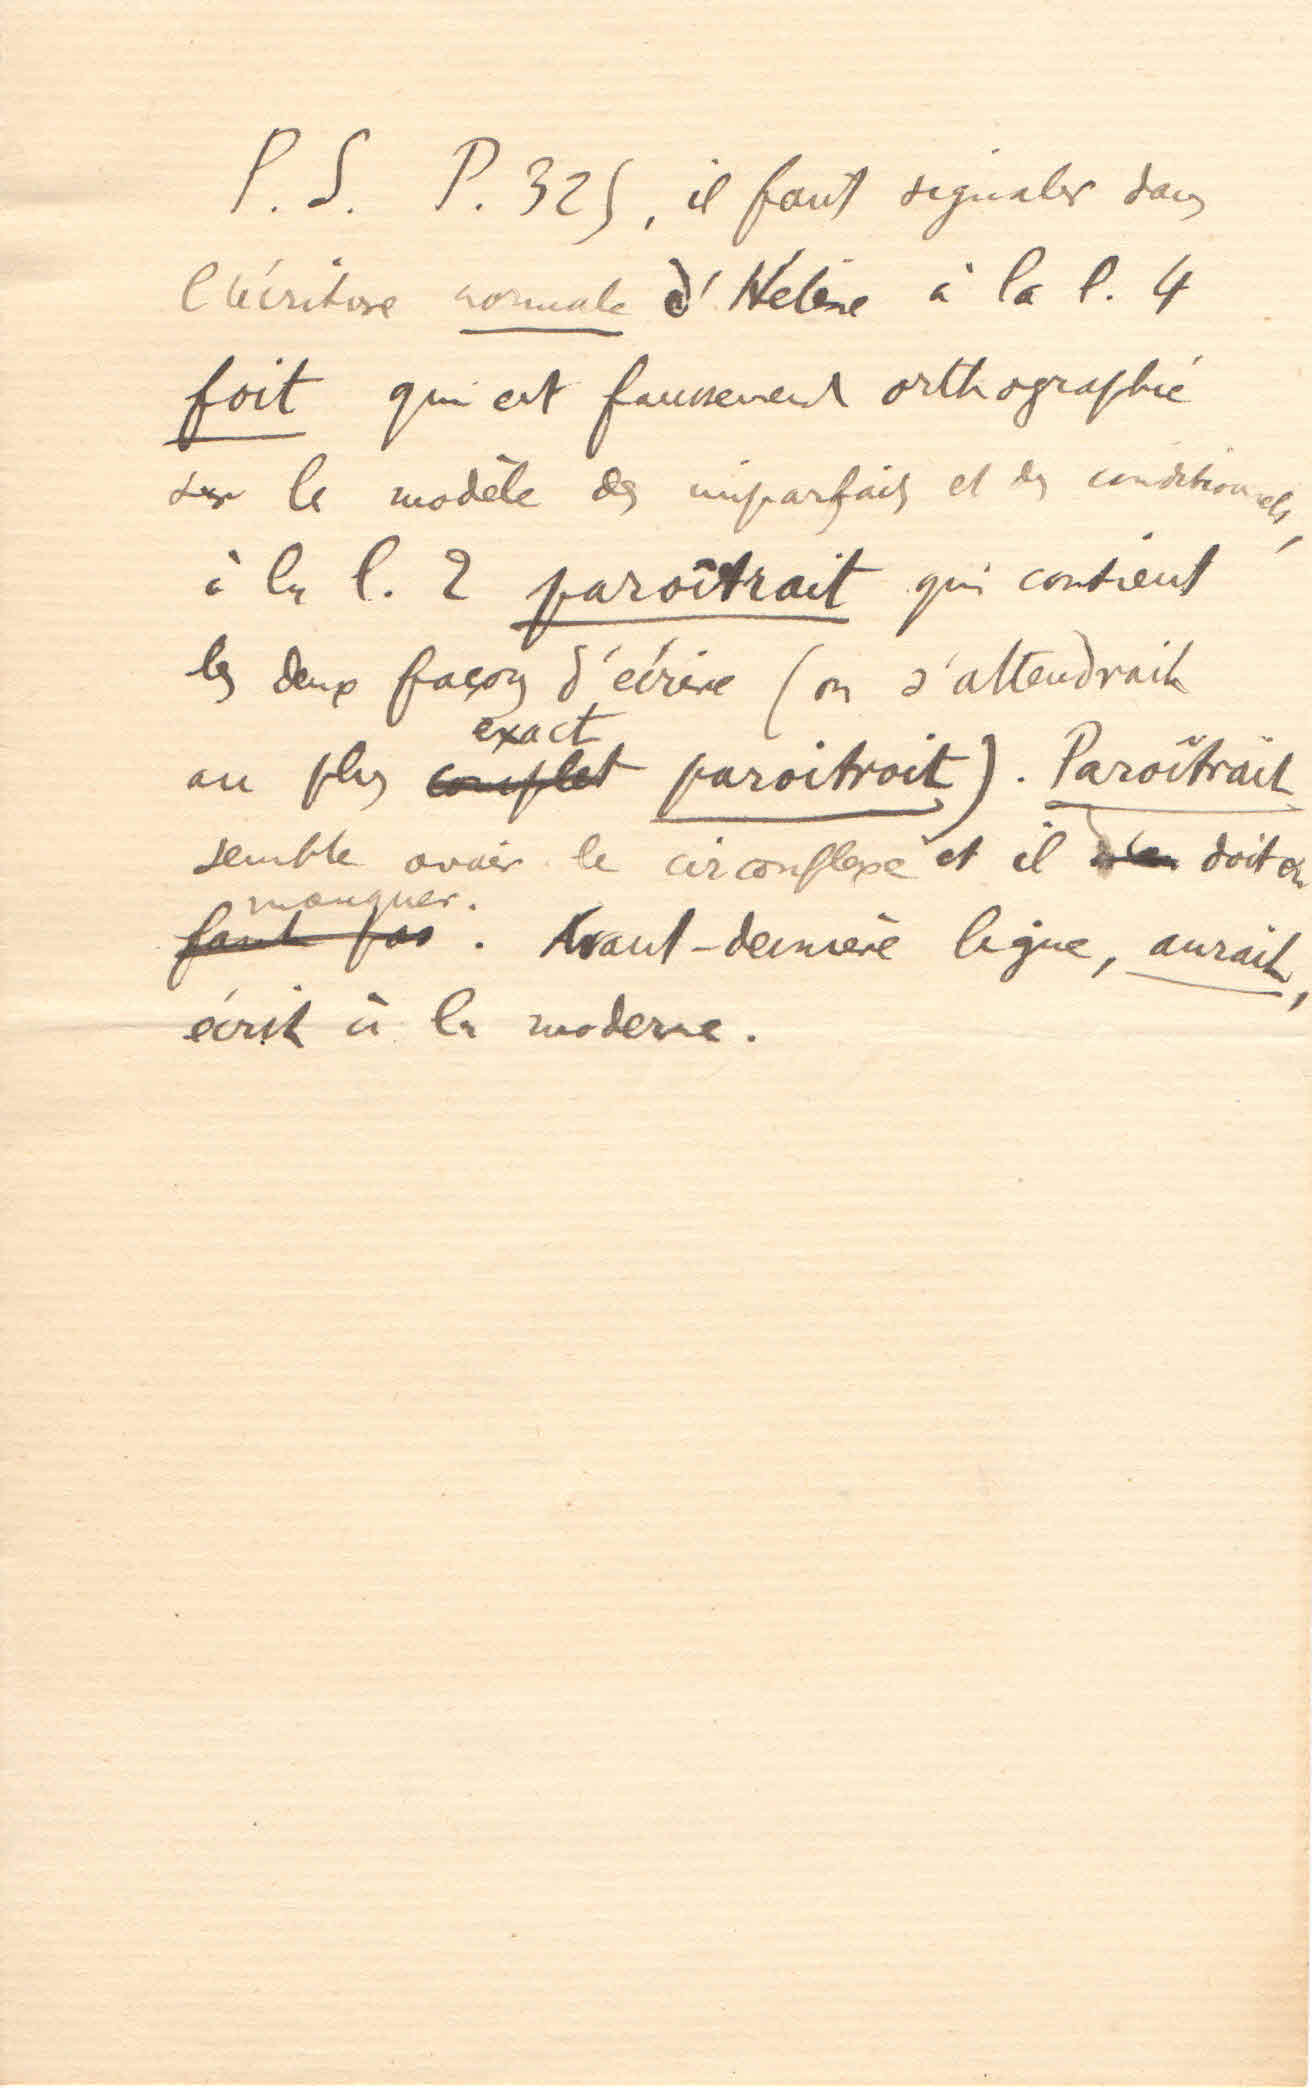 P. S. P. 325, il faut signaler dans
l'écriture normale d'Hélène à la l. 4
foit qui est faussement orthographié
sur le modèle des imparfaits et des conditionnels,
à la l. 2 paroîtrait qui contient
les deux façons d'écrire (on s'attendrait
exact
au plus complet paroitroit). Paroîtrait
semble avoir le circonflexe et il doit en
manquer.
faut pas. Avant-dernière ligne, aurait,
écrit à la moderne.